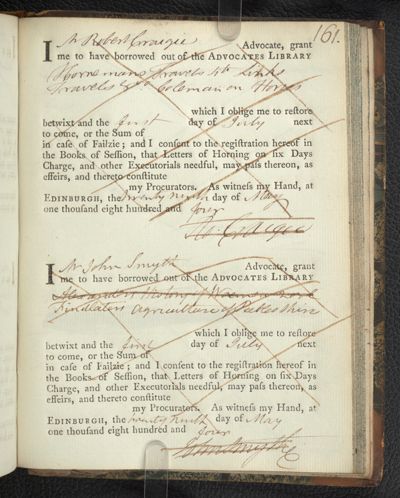 161.
I Mr Robert Craigie Advocate, grant
me to have borrowed out of the ADVOCATES LIBRARY
Hornemans Travels 4to Links
Travels 8vo Coleman on Horses
which I oblige me to reſtore
betwixt and the first day of July next
to come, or the Sum of
in caſe of Failzie; and I conſent to the regiſtration hereof in
the Books of Seſſion, that Letters of Horning on ſix Days
Charge, and other Executorials needful, may paſs thereon, as
effeirs, and thereto conſtitute
my Procurators. As witneſs my Hand, at
EDINBURGH, the twenty ninth day of May
one thouſand eight hundred and four
Craigie
I Mr John Smyth Advocate, grant
me to have borrowed out of the ADVOCATES LIBRARY
Alexander's History of Women
Findlater's agriculture of Peebles Shire
which I oblige me to reſtore
betwixt and the first day of July next
to come, or the Sum of
in caſe of Failzie; and I conſent to the regiſtration hereof in
the Books of Seſſion, that Letters of Horning on ſix Days
Charge, and other Executorials needful, may paſs thereon, as
effeirs, and thereto conſtitute
my Procurators. As witneſs my Hand, at
EDINBURGH, the twenty ninth day of May
one thouſand eight hundred and four
John Smyth